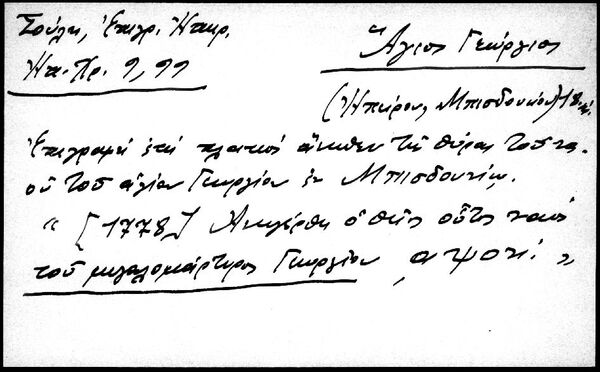 Σούλη, Ἐπιγρ. Ἠπειρ.
Ἠπ. Χρ. 9, 99
Ἅγιος Γεώργιος
(Ἠπείρου, Μπισδουνίου) 18
Ἐπιγραφή ἐπί πλακός ἄνωθεν τῆς θύρας τοῦ να-
οῦ τοῦ ἁγίου Γεωργίου ἐν Μπισδουνίῳ.
" [1778] Ἀνηγέρθη ὁ θεῖος οὗτος ναός
τοῦ μεγαλομάρτυρος Γεωργίου ,αψοη΄ "